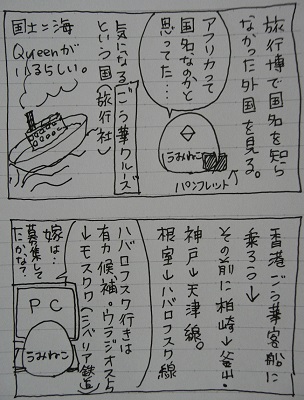 旅行博で国名を知ら
なかった外国を見る。
アフリカって
国名なのかと
思ってた…
うみねこ
パンフレット
気になる ごう華クルーズ
という国(旅行社)
国土=海
Queenが
いるらしい。
香港ごう華客船に
乗ろう→
その前に柏崎→釜山・
神戸→天津線。
根室→ハバロフスク線
ハバロフスク行きは
有力候補。ウラジオストク
→モスクワ(シベリア鉄道)
嫁は…
募集して
たかな?
PC
うみねこ